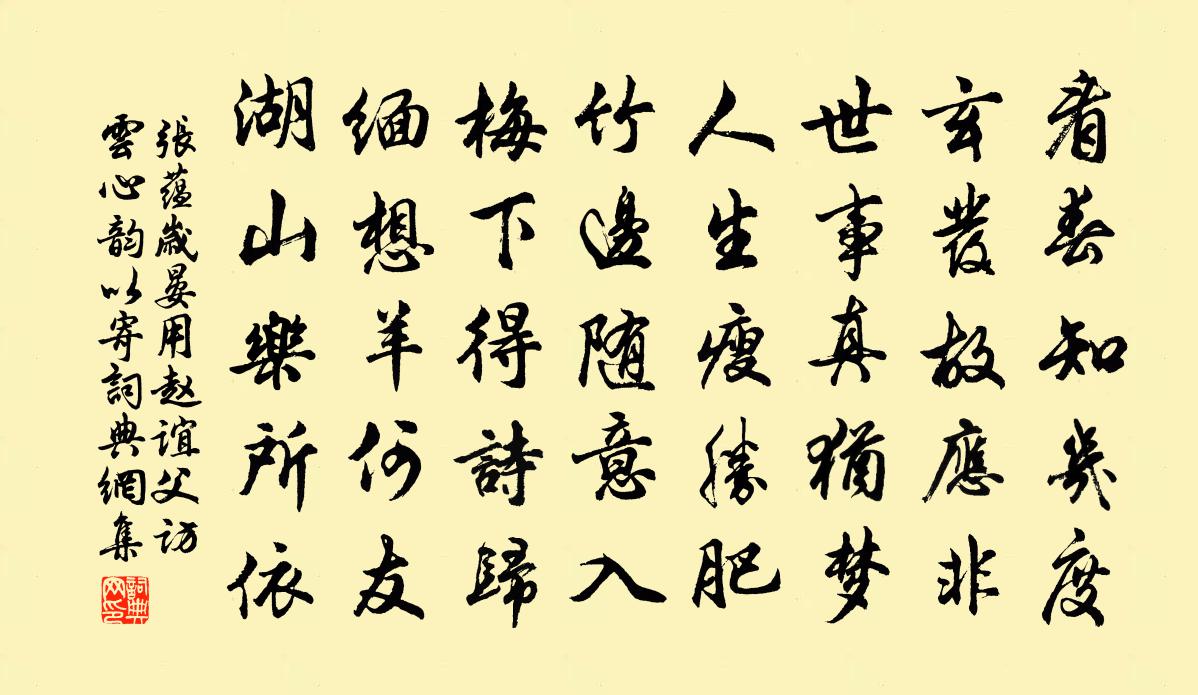 看春知幾度
玄發故應非
世事真猶梦
人生瘦勝肥
竹邊随意入
梅下得詩歸
缅想羊何友
湖山樂所依
張蕴歲晏用赵谊父访
雲心韵以寄詞典網集
詞典
网印